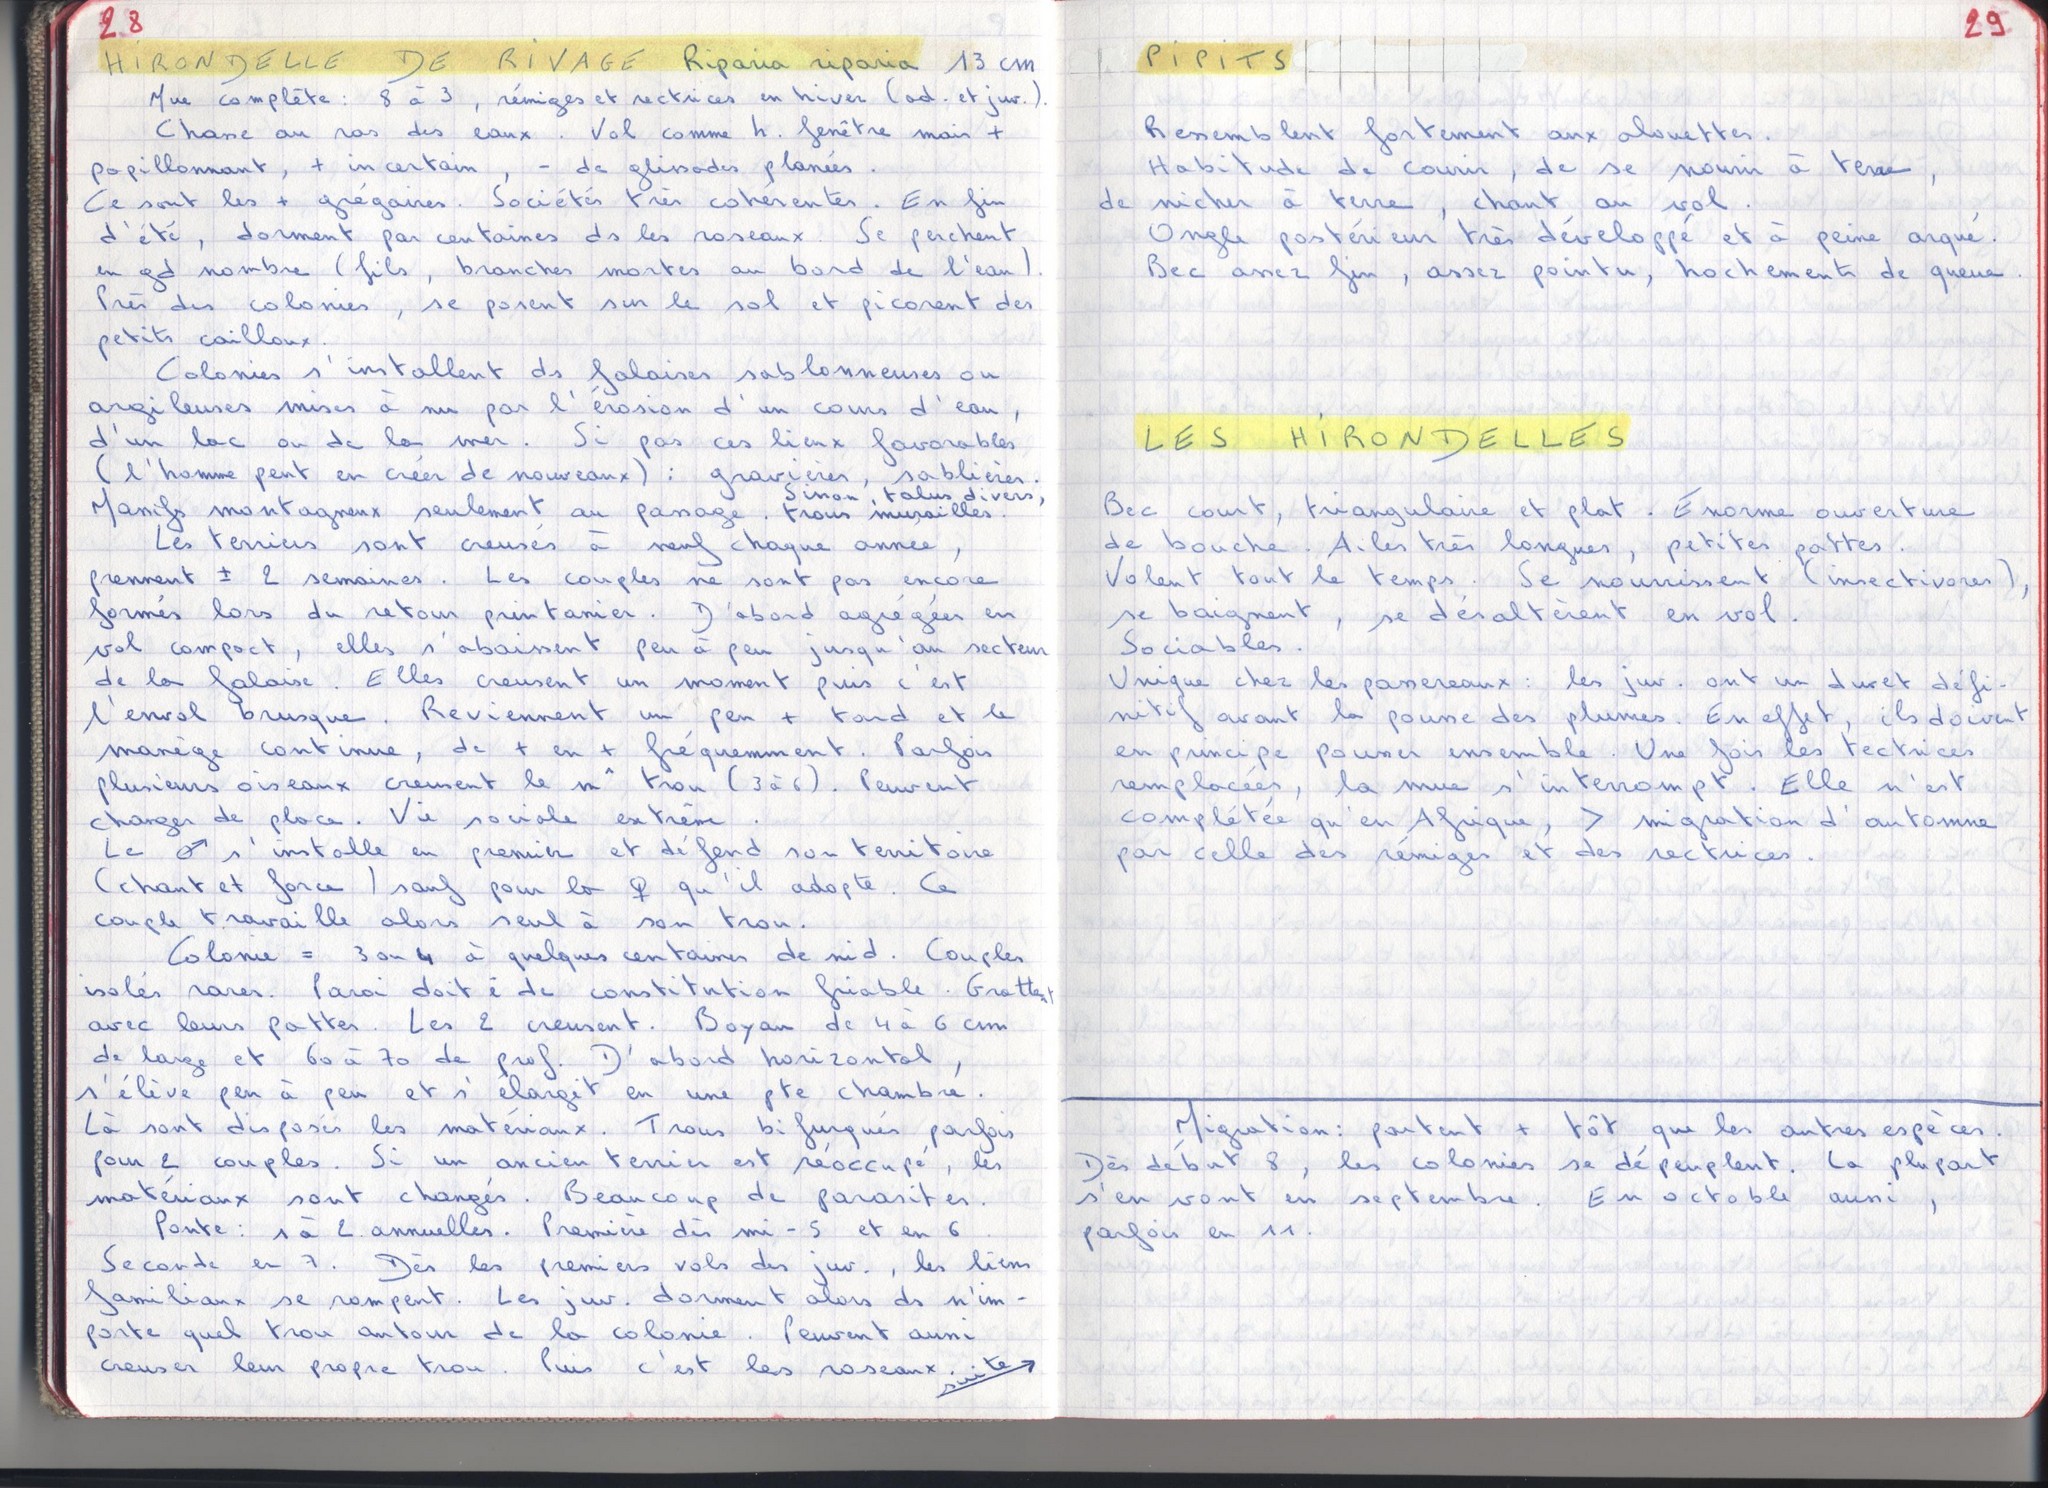 28
HIRONDELLE DE RIVAGE Riparia riparia 13 cm
Mue complète : 8 à 3, rémiges et rectrices en hiver (ad. et juv.).
Chasse au ras des eaux. Vol comme h. fenêtre mais +
papillonnant, + incertain, - de glissades planées.
Ce sont les + grégaires. Sociétés très cohérentes. En fin
d'été, dorment par centaines ds les roseaux. Se perchent
en gd nombre (fils, branches mortes au bord de l'eau).
Près des colonies, se posent sur le sol et picorent des
petits cailloux.
Colonies s'installent ds falaises sablonneuses ou
argileuses mises à nu par l'érosion d'un cours d'eau,
d'un lac ou de la mer. Si pas ces lieux favorables
(l'homme peut en créer de nouveaux) : gravières, sablières.
Sinon, talus divers,
Massifs montagneux seulement au passage. trous murailles.
Les terriers sont creusés à neuf chaque année,
prennent ± 2 semaines. Les couples ne sont pas encore
formés lors du retour printanier. D'abord agrégées en
vol compact, elles s'abaissent peu à peu jusqu'au secteur
de la falaise. Elles creusent un moment puis c'est
l'envol brusque. Reviennent un peu + tard et le
manège continue, de + en + fréquemment. Parfois
plusieurs oiseaux creusent le m^ trou (3 à 6). Peuvent
changer de place. Vie sociale extrême.
Le ♂ s'installe en premier et défend son territoire
(chant et force) sauf pour la ♀ qu'il adopte. Ce
couple travaille alors seul à son trou.
Colonie = 3 ou 4 à quelques centaines de nid. Couples
isolés rares. Paroi doit ê de constitution friable. Grattent
avec leurs pattes. Les 2 creusent. Boyau de 4 à 6 cm
de large et 60 à 70 de prof. D'abord horizontal,
s'élève peu à peu et s'élargit en une pte chambre.
Là sont disposés les matériaux. Trous bifurqués parfois
pour 2 couples. Si un ancien terrier est réoccupé, les
matériaux sont changés. Beaucoup de parasites.
Ponte : 1 à 2 annuelles. Première dès mi-5 et en 6.
Seconde en 7. Dès les premiers vols des juv., les liens
familiaux se rompent. Les juv. dorment alors ds n'im-
porte quel trou autour de la colonie. Peuvent aussi
creuser leur propre trou. Puis c'est les roseaux. suite →
29
PIPITS
Ressemblent fortement aux alouettes.
Habitude de courir, de se nourrir à terre,
de nicher à terre, chant au vol.
Ongle postérieur très développé et à peine arqué.
Bec assez fin, assez pointu, hochements de queue.
LES HIRONDELLES
Bec court, triangulaire et plat. Énorme ouverture
de bouche. Ailes très longues, petites pattes.
Volent tout le temps. Se nourrissent (insectivores),
se baignent, se désaltèrent en vol.
Sociables.
Unique chez les passereaux : les juv. ont un duvet défi-
nitif avant la pousse des plumes. En effet, ils doivent
en principe pousser ensemble. Une fois les tectrices
remplacées, la mue s'interrompt. Elle n'est
complétée qu'en Afrique, > migration d'automne
par celle des rémiges et des rectrices.
Migration : partent + tôt que les autres espèces.
Dès début 8, les colonies se dépeuplent. La plupart
s'en vont en septembre. En octoble aussi,
parfois en 11.